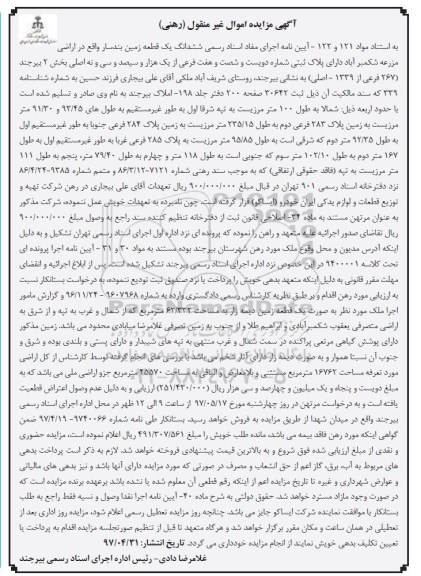 آگهی مزایده اموال غیر منقول (رهنی)
به استناد مواد ۱۲۱ و ۱۲۲ - آیین نامه اجرای مفاد اسناد رسمی ششدانگ یک قطعه زمین بندسار واقع در اراضی
مزرعه شکمبر آباد دارای پلاک ثبتی شماره دویست و شصت و هفت فرعی از یک هزار و سیصد و سی و نه اصلی بخش ۲ بیرجند
(۲۶۷ فرعی از ۱۳۳۹ - اصلی) به نشانی بیرجند، روستای شریف آباد ملکی آقای علی بیجاری فرزند حسین به شماره شناسنامه
۳۳۹ که سند مالکیت آن ذیل ثبت ۳۰۶۴۲ صفحه ۲۰۰ دفتر جلد ۱۹۸- املاک بیرجند به نام وی صادر و تسلیم شده است
با حدود اربعه ذیل: شمالا به طول ۱۰۰ متر مرزیست به تپه شرقا اول به طور غیرمستقیم به طول های ۹۳/۴۵ و ۹۱/۳۰ متر
مرزیست به زمین پلاک ۲۸۳ فرعی دوم به طول ۲۳۵/۱۵ متر مرزیست به زمین پلاک ۲۸۴ فرعی جنوبا به طور غیرمستقیم اول به
طول ۹۲/۳۵ متر دوم که شرقی است به طول ۹۵/۸۵ متر مرزیست به زمین پلاک ۲۸۵ فرعی غربا به طور غیرمستقیم اول به طول
۱۶۷ متر دوم به طول ۱۰۲/۱۰ متر سوم که جنوبی است به طول ۱۱۸ متر و چهارم به طول ۷۹/۴۰ متر، پنجم به طول ۱۱۱
متر مرزیست به تپه (فاقد حقوق ارتفاقی) که به موجب سند رهنی شماره ۷۱۲۱-۸۶/۳/۱۲ و متمم شماره ۹۳۸۵-۸۶/۴/۲۴
نزد دفترخانه اسناد رسمی ۹۰۱ تهران در قبال مبلغ ۹۰۰/۰۰۰/۰۰۰ ریال تعهدات آقای علی بیجاری در رهن شرکت تهیه و
توزیع قطعات و لوازم یدکی ایران خودرو (ایساکو) قرار گرفته است، چون نامبرده به تعهدات خویش عمل ننموده، شرکت مذکور
به عنوان مرتهن مستند به ماده ۳۴- اصلاحی قانون ثبت از دفترخانه تنظیم کننده سند راجع به وصول مبلغ ۹۰۰/۰۰۰/۰۰۰
ریال تقاضای صدور اجرائیه علیه متعهد و راهن را نموده که پرونده ای نزد اداره اول اجرای اسناد رسمی تهران تشکیل و به دلیل
اینکه آدرس مدیون و محل وقوع ملک مورد رهن شهرستان بیرجند بوده، مستند به مواد ۳۰ و ۳۱ - آیین نامه اجرا پرونده ای
تحت کلاسه ۹۴۰۰۰۰۱ در این خصوص نزد اداره اجرای اسناد رسمی بیرجند تشکیل شده است. پس از ابلاغ اجرائیه و انقضای
مهلت مقرر قانونی به دلیل اینکه متعهد بدهی خویش را پرداخت یا نزد صندوق ثبت تودیع ننموده، به درخواست بستانکار نسبت
به ارزیابی مورد رهن اقدام و بر طبق نظریه کارشناس رسمی دادگستری وارده به شماره ۹۶۰۷۹۶۸ - ۹۶/۱۱/۲۴ و گزارش مامور
اجرا ملک مورد نظر به صورت یک قطعه زمین دیمه زار به مساحت ۶۲/۳۳۲ مترمربع که از شمال و غرب به تپه و از شرق به
اراضی متصرفی یعقوب شکمبرآبادی و ابراهیم طلا و از جنوب به زمین تصرفی غلامرضا میابادی محدود می باشد. زمین مذکور
دارای پوشش گیاهی مرتعی پراکنده در سمت شمال و غرب منتهی به تپه های شیبدار و دارای پستی و بلندی بوده و شرق و
جنوب آن نسبتا هموار و به صورت دیمه زار دارای آثار شخم می باشد. با بررسی های انجام گرفته توسط کارشناس از کل اراضی
مورد تعرفه مساحت ۱۶۷۶۲ مترمربع مستثنی و بلامعارض و الباقی به مساحت ۴۵۵۷۰ مترمربع جزو اراضی ملی می باشد که به
مبلغ دویست و پنجاه و یک میلیون و چهارصد و سی هزار ریال (۲۵۱/۴۳۰/۰۰۰) ارزیابی و به دلیل عدم وصول اعتراض قطعیت
یافته است و به درخواست مرتهن در روز چهارشنبه مورخ ۹۷/۰۵/۱۷ از ساعت ۹ الی ۱۲ ظهر در محل اداره اجرای اسناد رسمی
بیرجند واقع در میدان شهدا از طریق مزایده به فروش خواهد رسید. بستانکار طی نامه شماره ۹۷۴۰۰۶۶ - ۹۷/۴/۱۹ ضمن
گواهی اینکه مورد رهن فاقد بیمه می باشد، مانده طلب خویش را مبلغ ۴۹۱/۳۰۷/۵۶۱ ریال اعلام نموده است، مزایده حضوری
و نقدی از مبلغ ارزیابی شده فوق شروع و به بالاترین قیمت پیشنهادی فروخته خواهد شد. لازم به ذکر است پرداخت بدهی
های مربوط به آب، برق، گاز اعم از حق انشعاب و مصرف در صورتی که مورد مزایده دارای آنها باشد و نیز بدهی های مالیاتی
و عوارض شهرداری و غیره تا تاریخ مزایده اعم از اینکه رقم قطعی آن معلوم شده یا نشده باشد برعهده برنده مزایده است که
در صورت وجود مازاد مسترد خواهد شد. حقوق دولتی به شرح ماده ۴۰- آیین نامه اجرا نقدا وصول و نسیه فقط راجع به طلب
بستانکار با موافقت نماینده شرکت ایساکو جایز می باشد. چنانچه روز مزایده تعطیل رسمی اعلام شود، مزایده روز اداری بعد از
تعطیلی در همان ساعت و مکان مقرر برگزار خواهد شد و هرگاه متعهد تا قبل از تنظیم صورتجلسه مزایده اقدام به پرداخت یا
تعیین تکلیف بدهی خویش نمایند از انجام مزایده خودداری می گردد. تاریخ انتشار: ۹۷/۰۴/۳۱
غلامرضا دادی- رئیس اداره اجرای اسناد رسمی بیرجند